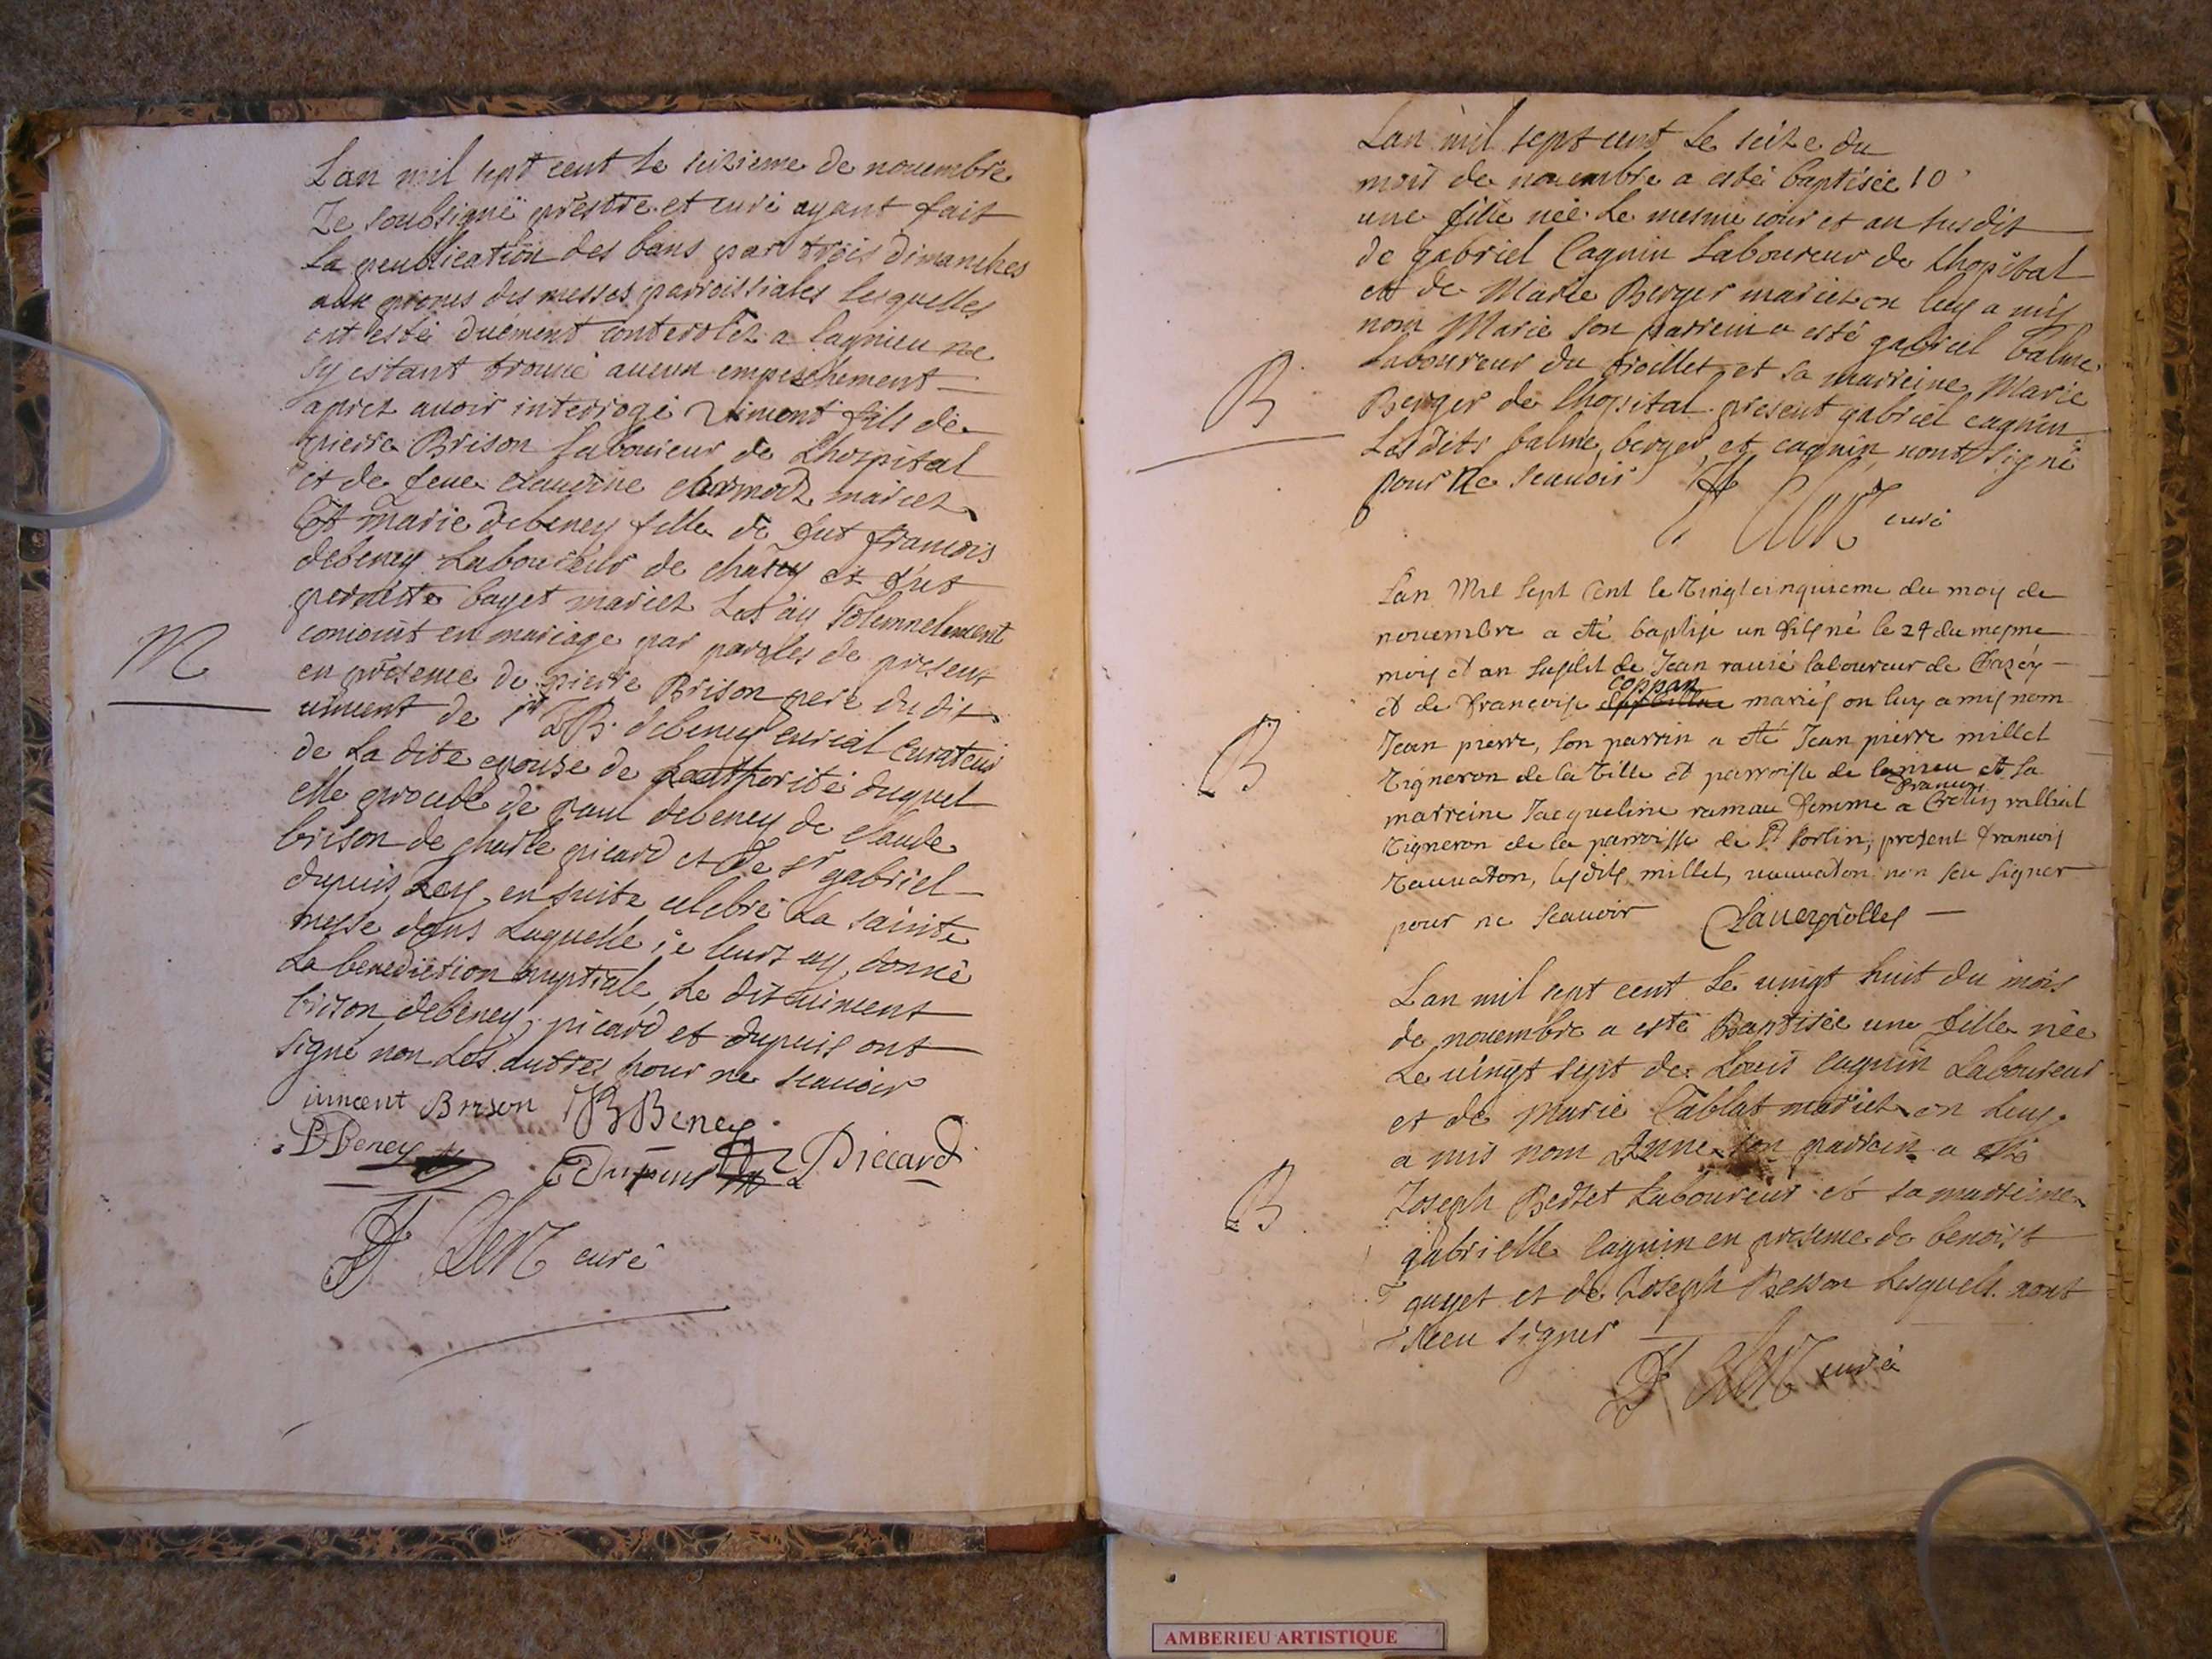 Lan mil sept cent le sizieme de nouembre
Je soubsigné prestre et curé ayant fait
La publication des bans par trois dimanches
aux prones des messes parroissiales lesquelles
ont esté duement controlez a lagnieu ne
sy estant trouué aucun empeschement
aprez auoir interrogé vincent fils de
pierre Brison laboureur de Lhospital
et de feue claudine mariez
Et Marie debeney fille de fut francois
debeney Laboureur de chasey et fut
pernette bayet mariez Les ay solemnelement
conioint en mariage par paroles de present
M
en presence de pierre Brison pere du dit
uincent de sr JB debeney curial curateur
de La dite epouse de Leauthorité duquel
elle procede de paul debeney de claude
brison de charle picard et de sr gabriel
dupuis Jay en suite celebré La sainte
messe dans Laquelle ie leurs ay donné
La benediction nuptiale Le dit uincent
brison debeney, picard et dupuis ont
signé non Les autres pour ne scauoir
uincent Brison JB Beney
P DBeney Dupuis Piccard
curé
Lan mil sept cent Le seize du
mois de nouembre a esté baptisée 10
une fille née Le mesme iour et an susdit
de gabriel Cagnin Laboureur de Lhopital
et de Marie Berger mariez on luy a mis
nom Marie son parrein a esté gabriel balme
B
Laboureur du et sa marreine Marie
Berger de lhopital present gabriel cagnin
Lesdits balme, berger, et cagnin nont signé
pour Ne scauoir
curé
Lan Mil Sept Cent le Vingt cinquieme du moys de
nouembre a eté baptisé un fils né le 24 du mesme
mois et an susdit de Jean rauié laboureur de Chazéy
coppan
et de francoise mariés on luy a mis nom
B
Jean pierre, son parrin a eté Jean pierre millet
Vigneron de la Ville et parroisse de lagnieu et sa
francois
marreine Jacqueline ramau femme a ralliat
Vigneron de la parroisse de St Sorlin, present francois
Vauuaton, lesdits millet, uauuaton non seu signer
pour ne scauoir
Lan mil sept cent Le uingt huit du mois
de nouembre a esté Baptisée une fille née
Le uingt sept de Louis cagnin Laboureur
et de Marie Tablat mariez on Luy
a mis nom Anne son parrain a esté
B
Joseph Berset Laboureur et sa marreine
gabrielle cagnin en presence de benoist
guyet et de Joseph Besson Lesquels nont
sceu signer
curé
AMBERIEU ARTISTIQUE